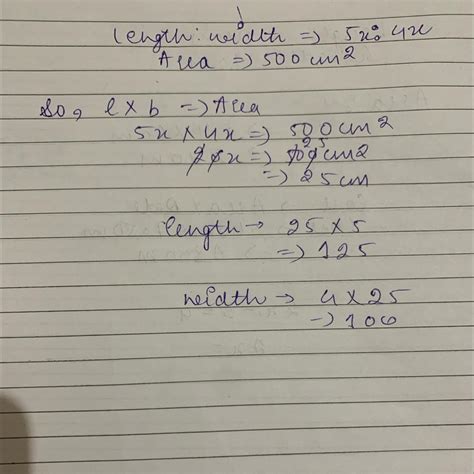 length : width => 5x : 4x
Area => 500 cm2
So, l x b => Area
5x x 4x => 500 cm2
=> 25 cm
length → 25 x 5
=> 125
width → 4 x 25
=> 100